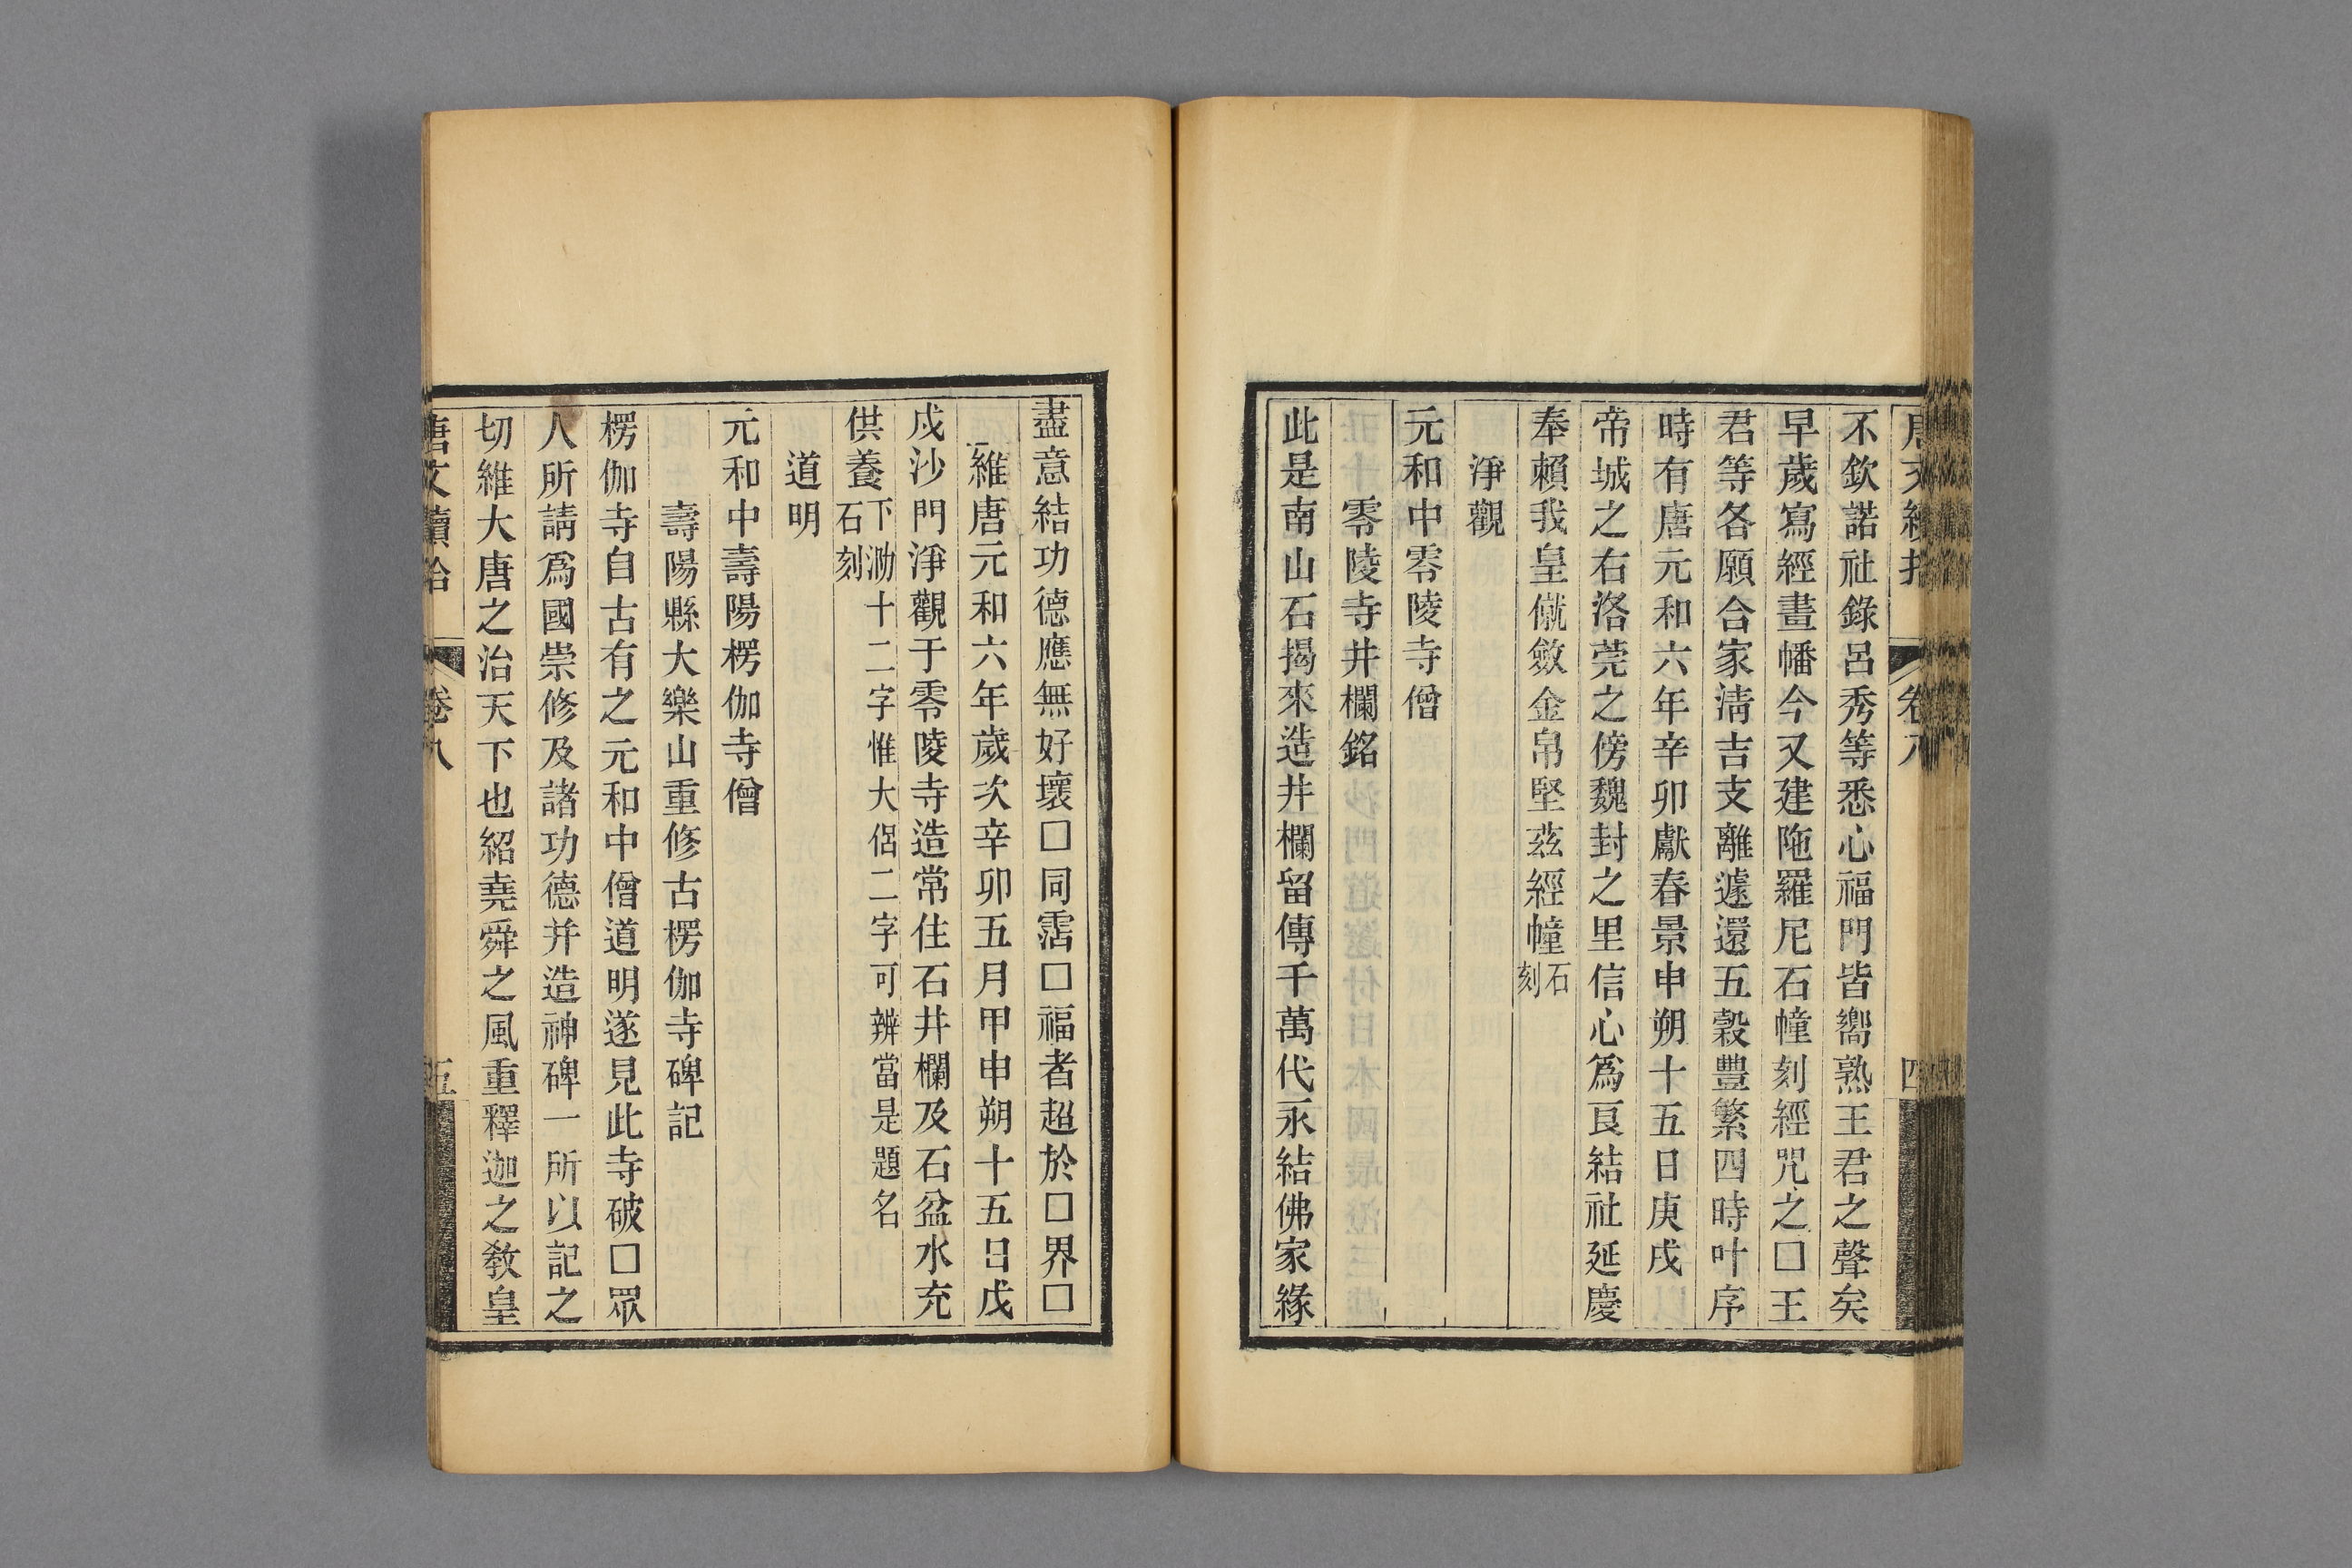 不欽諾社錄呂秀等悉心福門皆嚮熟王君之聲矣
早歲寫經畫幡今又建陁羅尼石幢刻經咒之□王
君等各願合家淸吉支離遽還五穀豐繁四時叶序
時有唐元和六年辛卯獻春景申朔十五日庚戌
帝城之右洛莞之傍魏封之里信心爲艮結社延慶
奉賴我皇僦斂金帛堅茲經幢石刻
淨觀
元和中零陵寺僧
零陵寺井欄銘
此是南山石揭來造井欄留傳千萬代永結佛家緣
盡意結功德應無好壞□同霑□福者超於□界□
維唐元和六年歲次辛卯五月甲申朔十五日戊
戍沙門淨觀于零陵寺造常住石井欄及石盆水充
供養下泐十二字惟大侶二字可辨當是題名石刻
道明
元和中壽陽楞伽寺僧
壽陽縣大樂山重修古楞伽寺碑記
楞伽寺自古有之元和中僧道明遂見此寺破□眾
人所請爲國崇修及諸功德并造神碑一所以記之
切維大唐之治天下也紹堯舜之風重釋迦之敎皇
唐文續拾 卷八 五